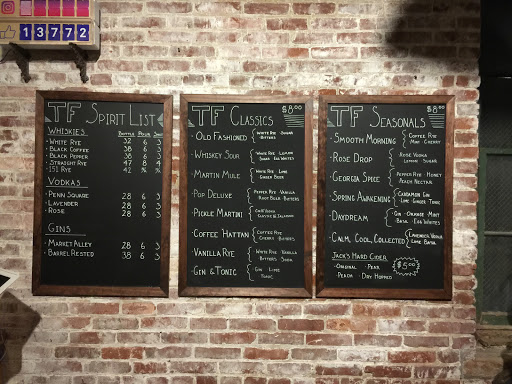 13772
TF SPIRIT LIST
WHISKIES BOTTLE POUR SHOT
· WHITE RYE 32 6 3
· BLACK COFFEE 38 6 3
· BLACK PEPPER 38 6 3
· STRAIGHT RYE 47 8 4
· 151 RYE 42
VODKAS
· PENN SQUARE 28 6 3
· LAVENDER 28 6 3
· ROSE 28 6 3
GINS
· MARKET ALLEY 28 6 3
· BARREL RESTED 38 6 3
TF CLASSICS $8.00
· OLD FASHIONED { WHITE RYE · SUGAR
BITTERS
· WHISKEY SOUR { WHITE RYE · LEMON
SUGAR · EGG WHITES
· MARTIN MULE { WHITE RYE · LIME
GINGER BEER
· POP DELUXE { PEPPER RYE · VANILLA
ROOT BEER · BITTERS
· PICKLE MARTINI
· COFFEE HATTAN { COFFEE RYE
CHERRY · BITTERS
· VANILLA RYE { WHITE RYE · VANILLA
BITTERS · SODA
· GIN & TONIC { GIN · LIME
TONIC
TF SEASONALS $8.00
· SMOOTH MORNING { COFFEE RYE
MINT · CHERRY
· ROSE DROP { ROSE VODKA
LEMON · SUGAR
· GEORGIA SPICE { PEPPER RYE · HONEY
PEACH NECTAR
· SPRING AWAKENING { CARDAMON GIN
LIME · GINGER · TONIC
· DAYDREAM { GIN · ORANGE · MINT
BASIL · EGG WHITES
· CALM, COOL, COLLECTED { LAVENDER VODKA
LIME · BASIL
JACK'S HARD CIDER $5.00
· ORIGINAL · PEAR
· PEACH · DRY HOPPED